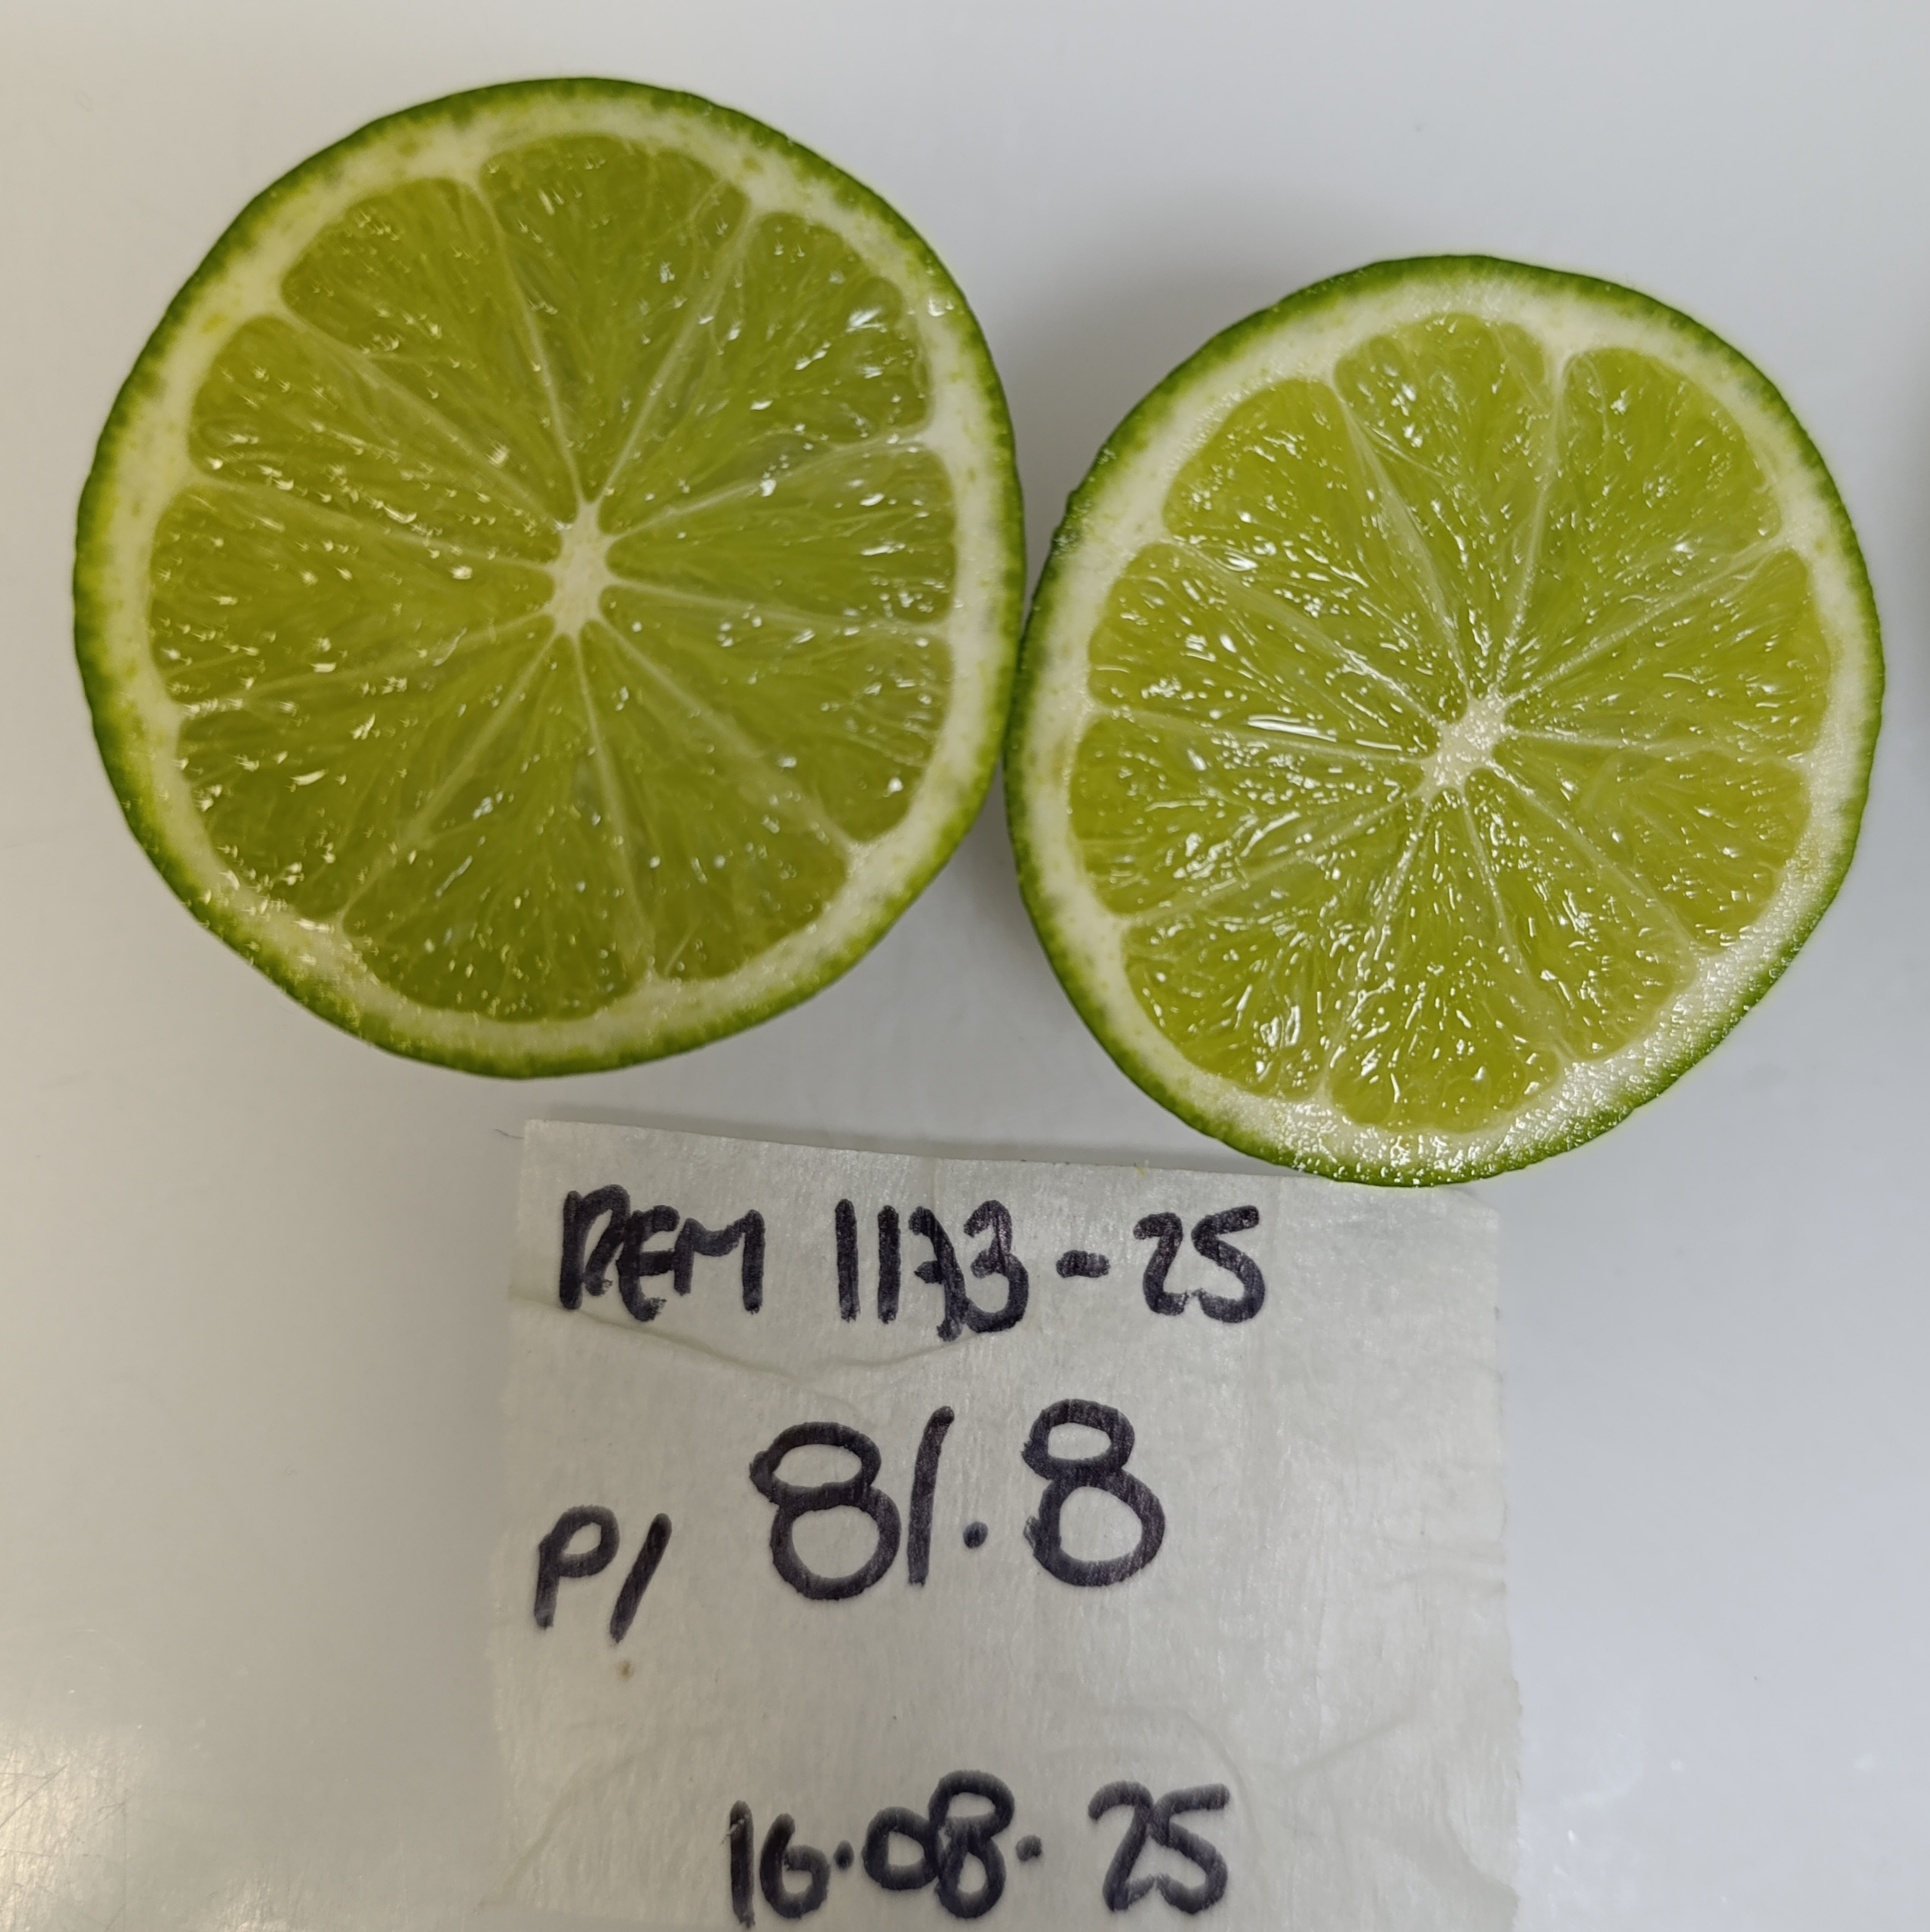 REM 1173-25
P/ 81.8
16.08.25